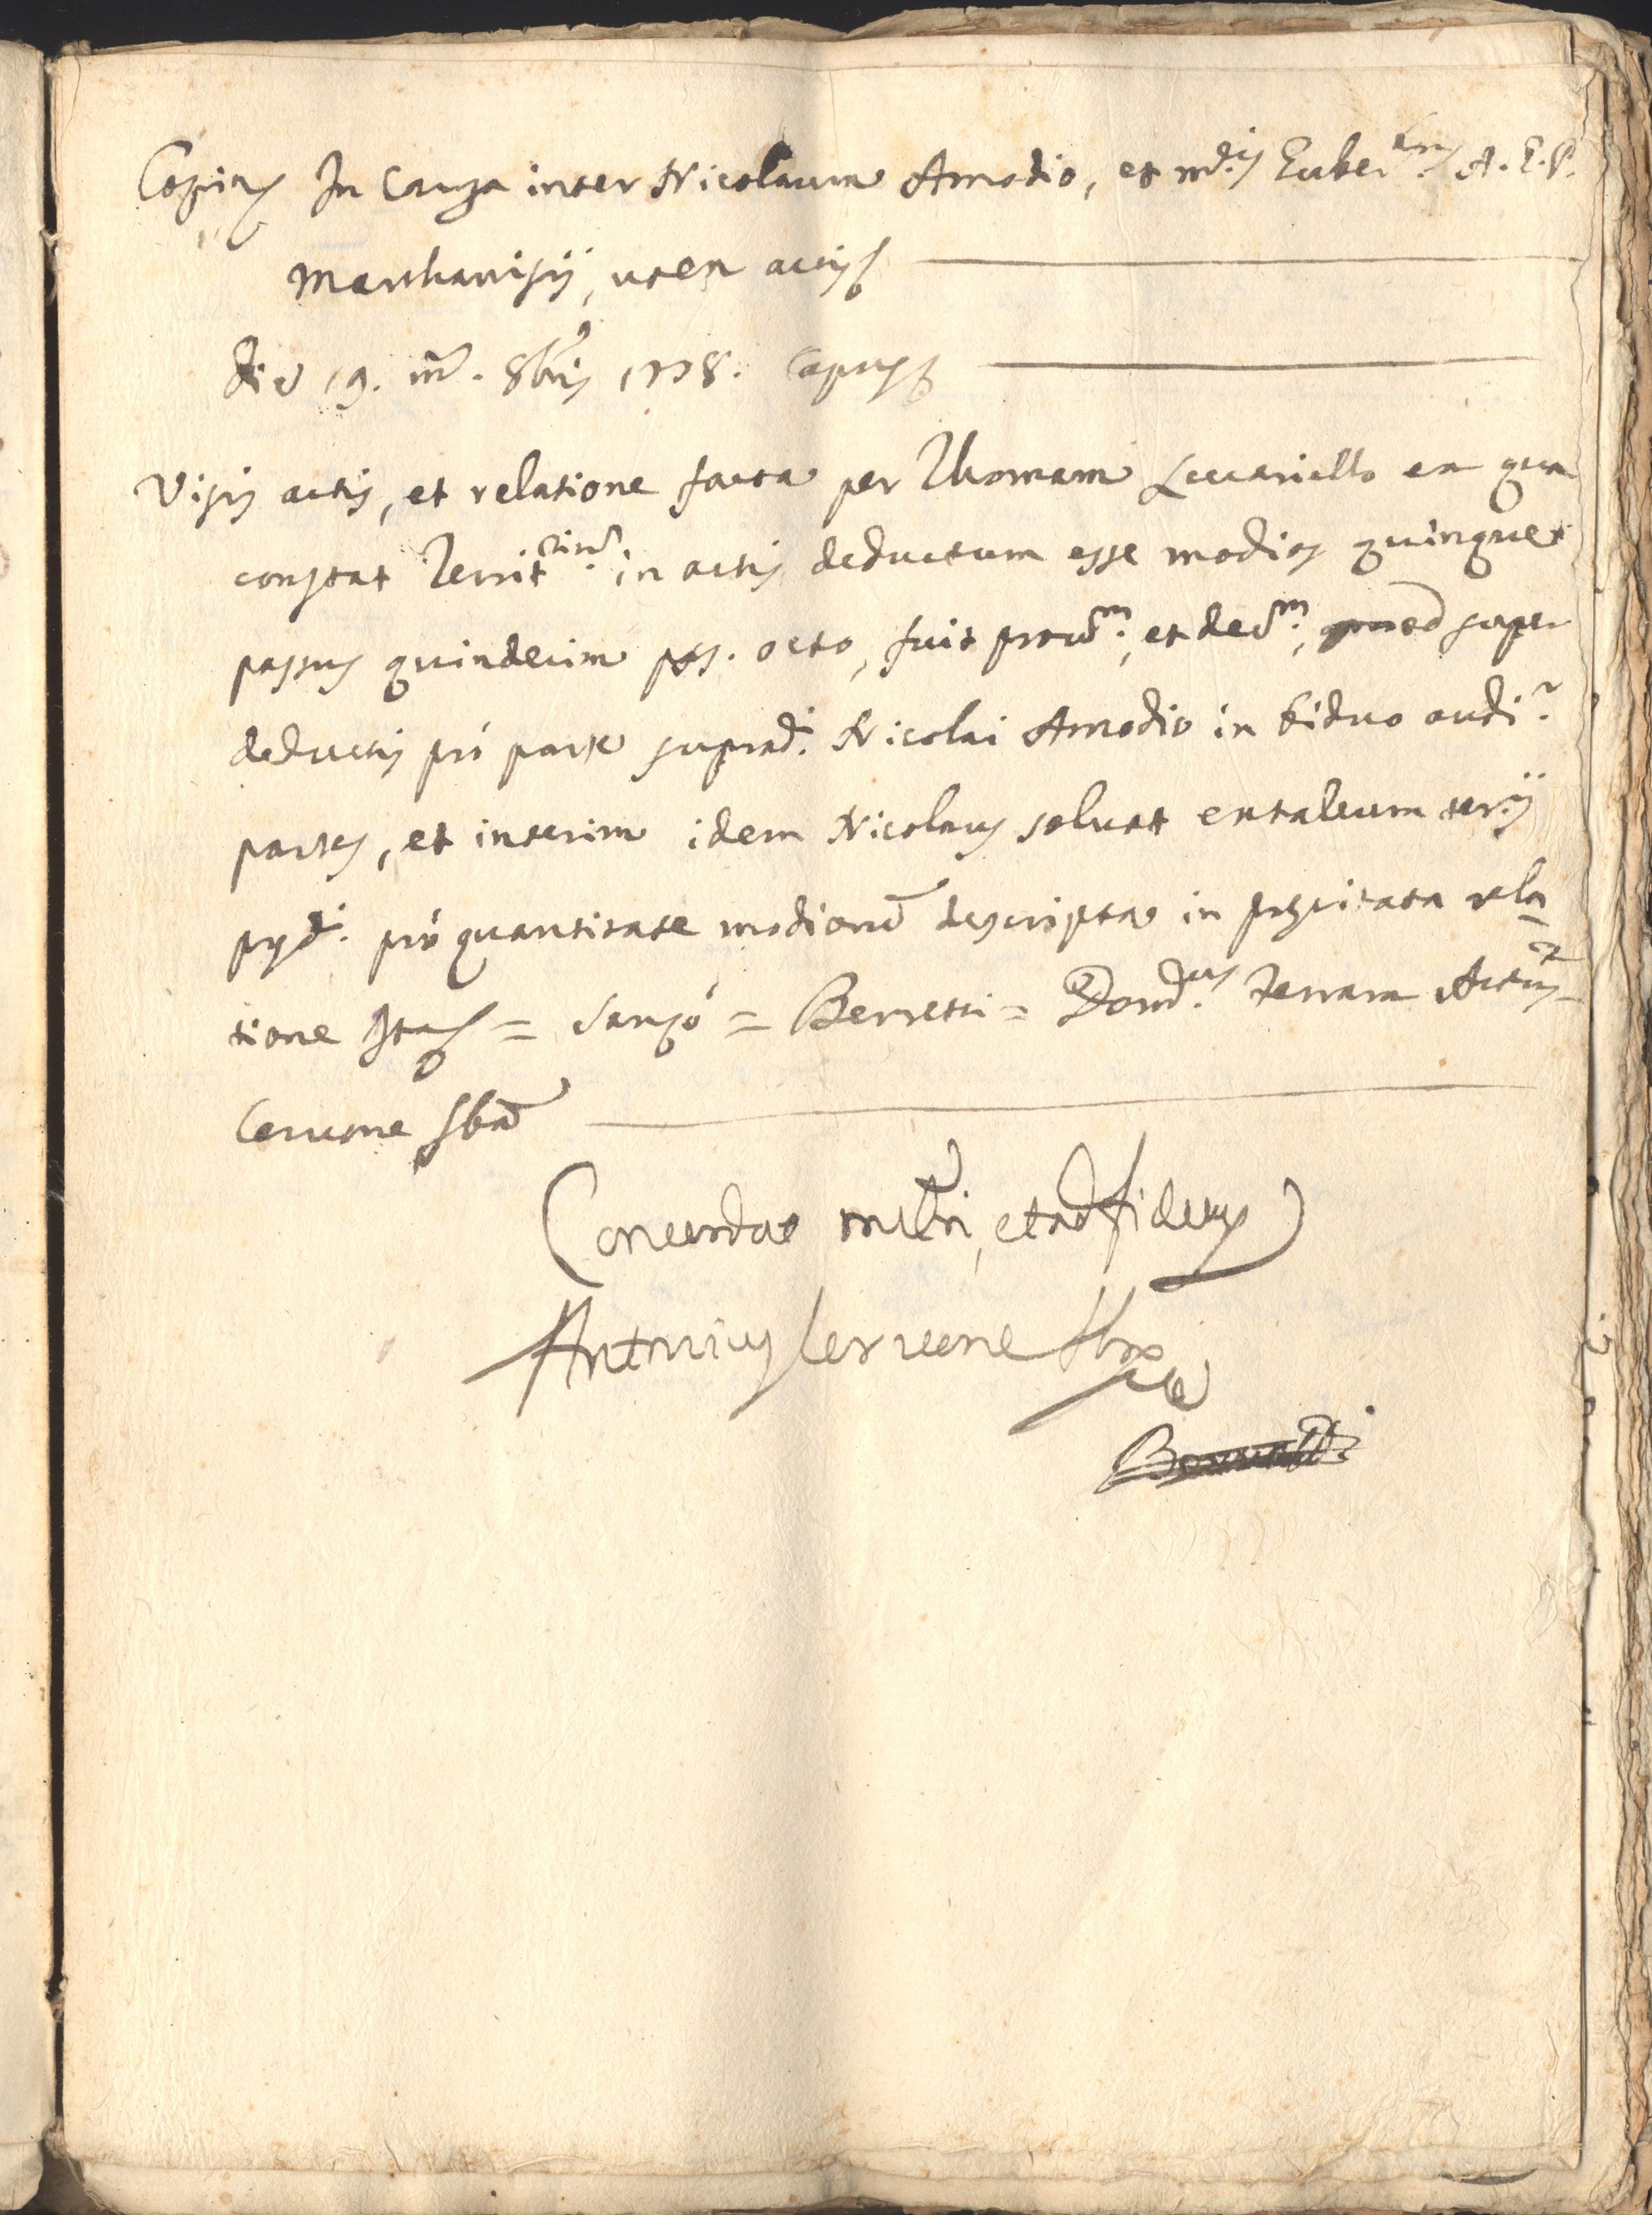 Copia In Causa inter Nicolaum Amodio, et m.ds Guber.tres A. G. P.
Marchanisij, ut ex actis
die 19. m. 8bris 1778. Capuæ
Visis actis, et relatione facta per Thomam Lucariello ex qua
constat Territ.rium in actis deductum esse modios quinque
passus quindecim pss. octo, fuit prov.m, et decr.m, quod super
deductis pro parte suprad.i Nicolai Amodio in biduo audi.r
partes, et interim idem Nicolaus solvat extaleum ter.ij
pred.i pro quantitate modiorum descripta in precitata rela
tione Ita = Sansò = Berretti = Dom.cus Ferrara Actus
Cervone sba
Concordat meliori, et ad fidem
Antonius Cervone sba